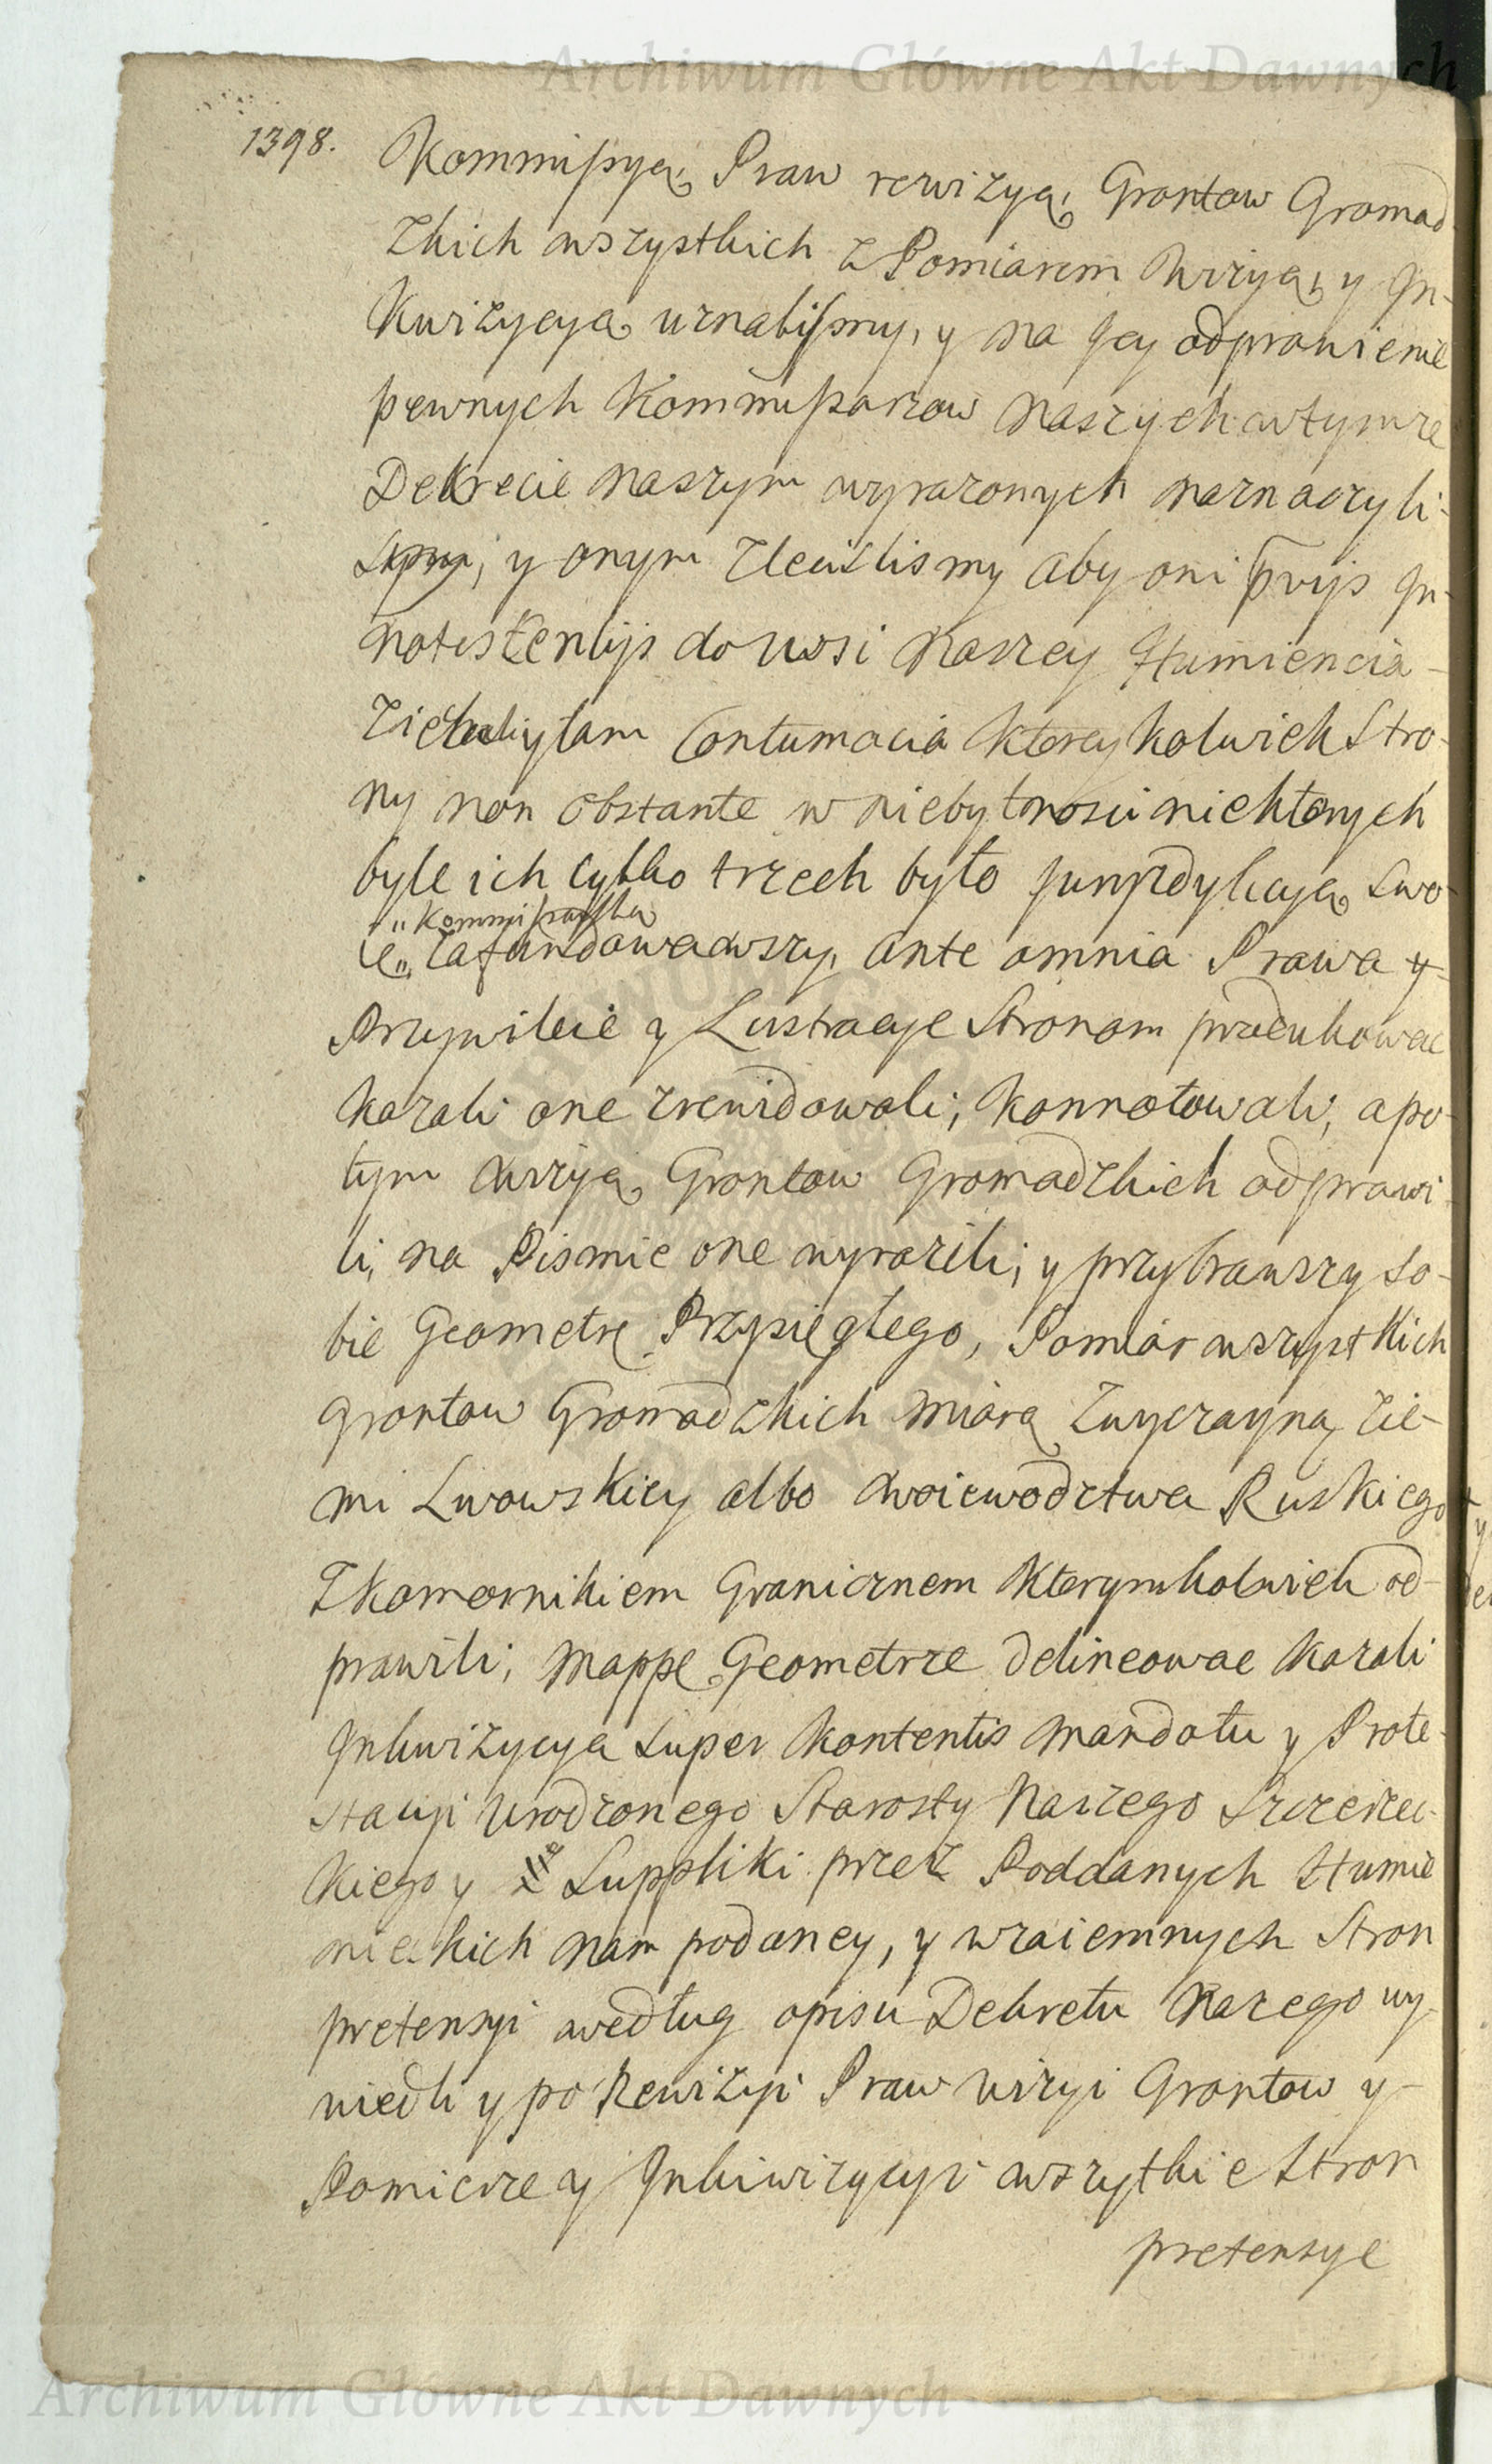 Archiwum Główne Akt Dawnych
1398.
Kommissyą, Praw rewizyą, Grontow Gromad
zkich wszystkich z Pomiarem Wizyą, y In-
kwizycyą uznalismy, y na Jey odprawienie
pewnych Kommissarzow Naszych wtymze
Dekrecie Naszym wyrazonych naznaczyli-
smy, y onym zleciilismy aby oni prvijs In-
notestentijs do wsi Naszey Humienca
ziechali y tam Contumacia ktorey kolwiek Stro-
ny non obstante w niebytnosci niektorych
byle ich tylko trzech było Jurysdykcyą Swo-
„Kommissarską
ię„ zafundowawszy, ante omnia Prawa y
Przywileie y Lustracye Stronom produkowac
kazali one zrewidowali, konnotowali, apo-
tym wizyą Grontow Gromadzkich odprawi
li, na Pismie one wyrazili, y przybrawszy so-
bie Geometrę Przysięgłego, Pomiar wszystkich
grontow Gromadzkich miarą zwyczayną zie-
mi Lwowskiey albo Woiewodztwa Ruskiego
z komornikiem Granicznem ktorymkolwiek od-
prawili, Mappę Geometrze delineowac kazali
Inkwizycyą super kontentis Mandatu y Prote-
stacyi Urodzonego Starosty Naszego Szczerzec-
kiego y Suppliki przez Poddanych Humie
nieckich Nam podaney, y wzaiemnych Stron
pretensyi według opisu Dekretu Naszego wy
wiedli y po Rewizyi Praw wizyi Grontow y
Pomierze y Inkiwizycyi wszytkie Stron
pretensye
Archiwum Główne Akt Dawnych